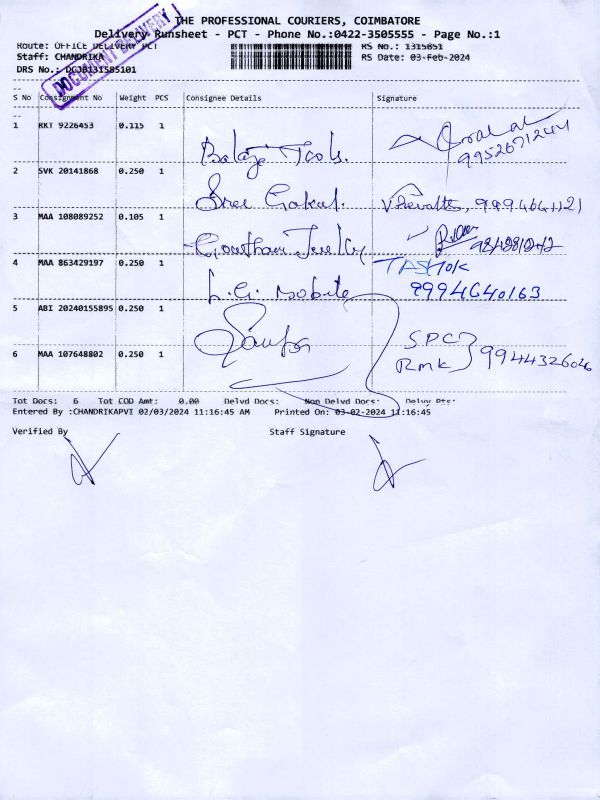 THE PROFESSIONAL COURIERS, COIMBATORE
Delivery Runsheet - PCT - Phone No.:0422-3505555 - Page No.:1
Route: OFFICE DELIVERY PCT RS No.: 1315851
Staff: CHANDRIKA RS Date: 03-Feb-2024
DRS No.: DCJB131585101
DOCUMENT DELIVERY
S No Consignment No Weight PCS Consignee Details Signature
1 RKT 9226453 0.115 1 Balaji Tools. 9952671244
2 SVK 20141868 0.250 1 Sree Gokul. V. Revathi, 9994641121
3 MAA 108089252 0.105 1 Goutham
4 MAA 863429197 0.250 1 L.G. Mobile T ASHOK
9994640163
5 ABI 20240155895 0.250 1 SPC
6 MAA 107648802 0.250 1 RMK 9944326046
Tot Docs: 6 Tot COD Amt: 0.00 Delvd Docs: Non Delvd Docs: Delvy Pts:
Entered By :CHANDRIKAPVI 02/03/2024 11:16:45 AM Printed On: 03-02-2024 11:16:45
Verified By Staff Signature